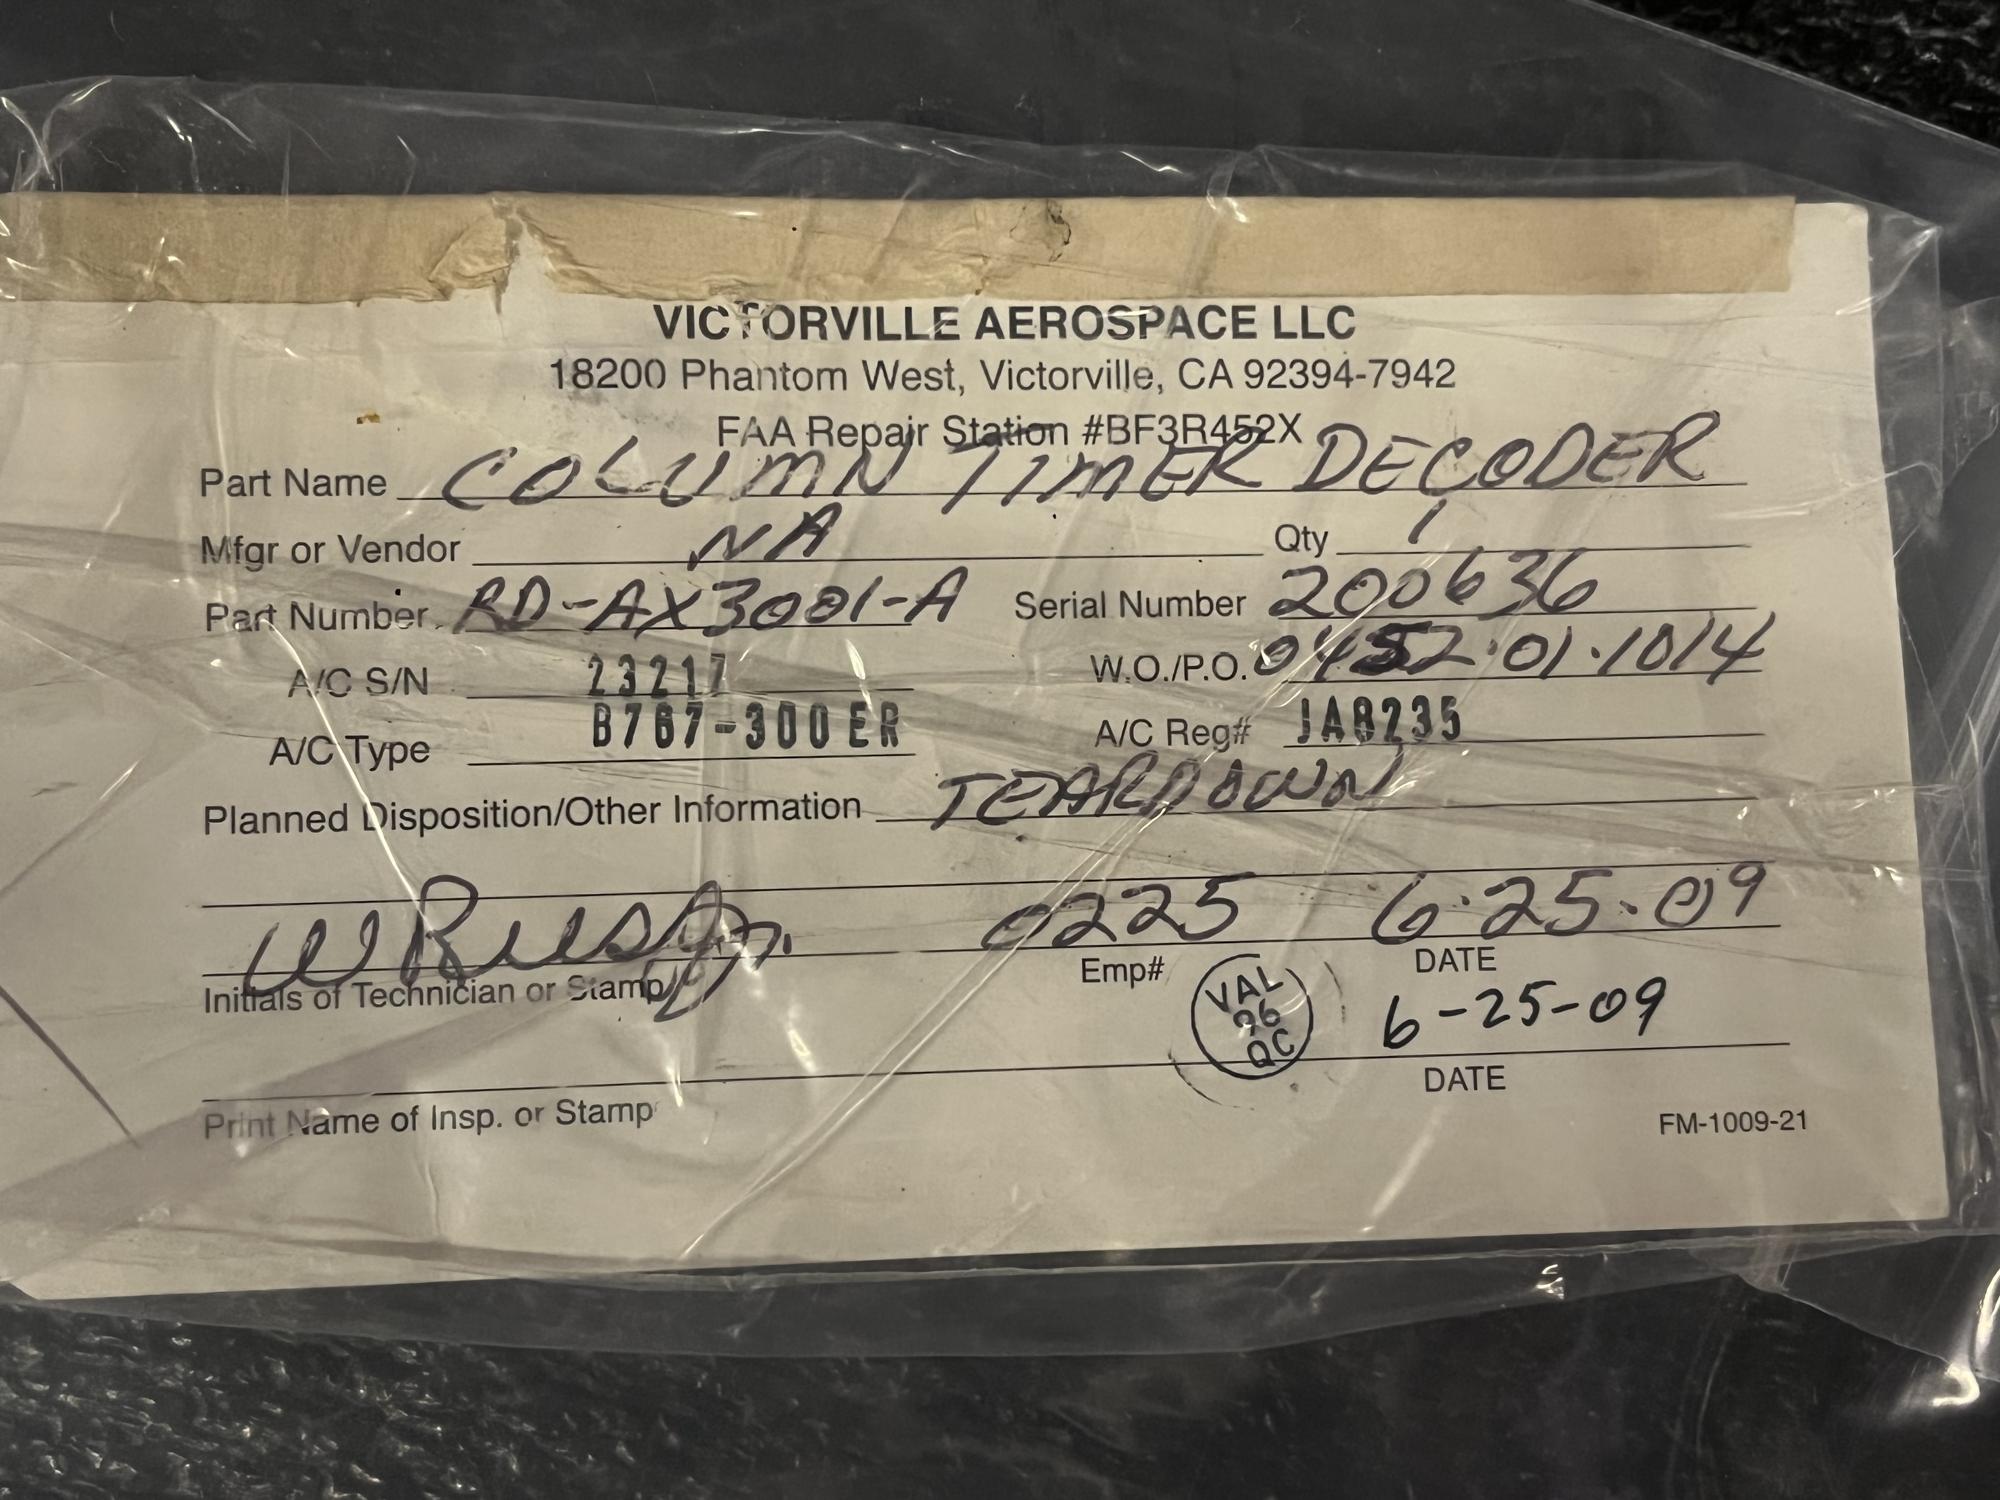 VICTORVILLE AEROSPACE LLC
18200 Phantom West, Victorville, CA 92394-7942
FAA Repair Station #BF3R452X
Part Name COLUMN TIMER DECODER
Mfgr or Vendor NA Qty 1
Part Number RD-AX3001-A Serial Number 200636
A/C S/N 23217 W.O./P.O. 0452.01.1014
A/C Type B767-300ER A/C Reg# JA8235
Planned Disposition/Other Information TEARDOWN
0225 6.25.09
Initials of Technician or Stamp Emp# DATE
VAL
QC
6-25-09
Print Name of Insp. or Stamp DATE
FM-1009-21